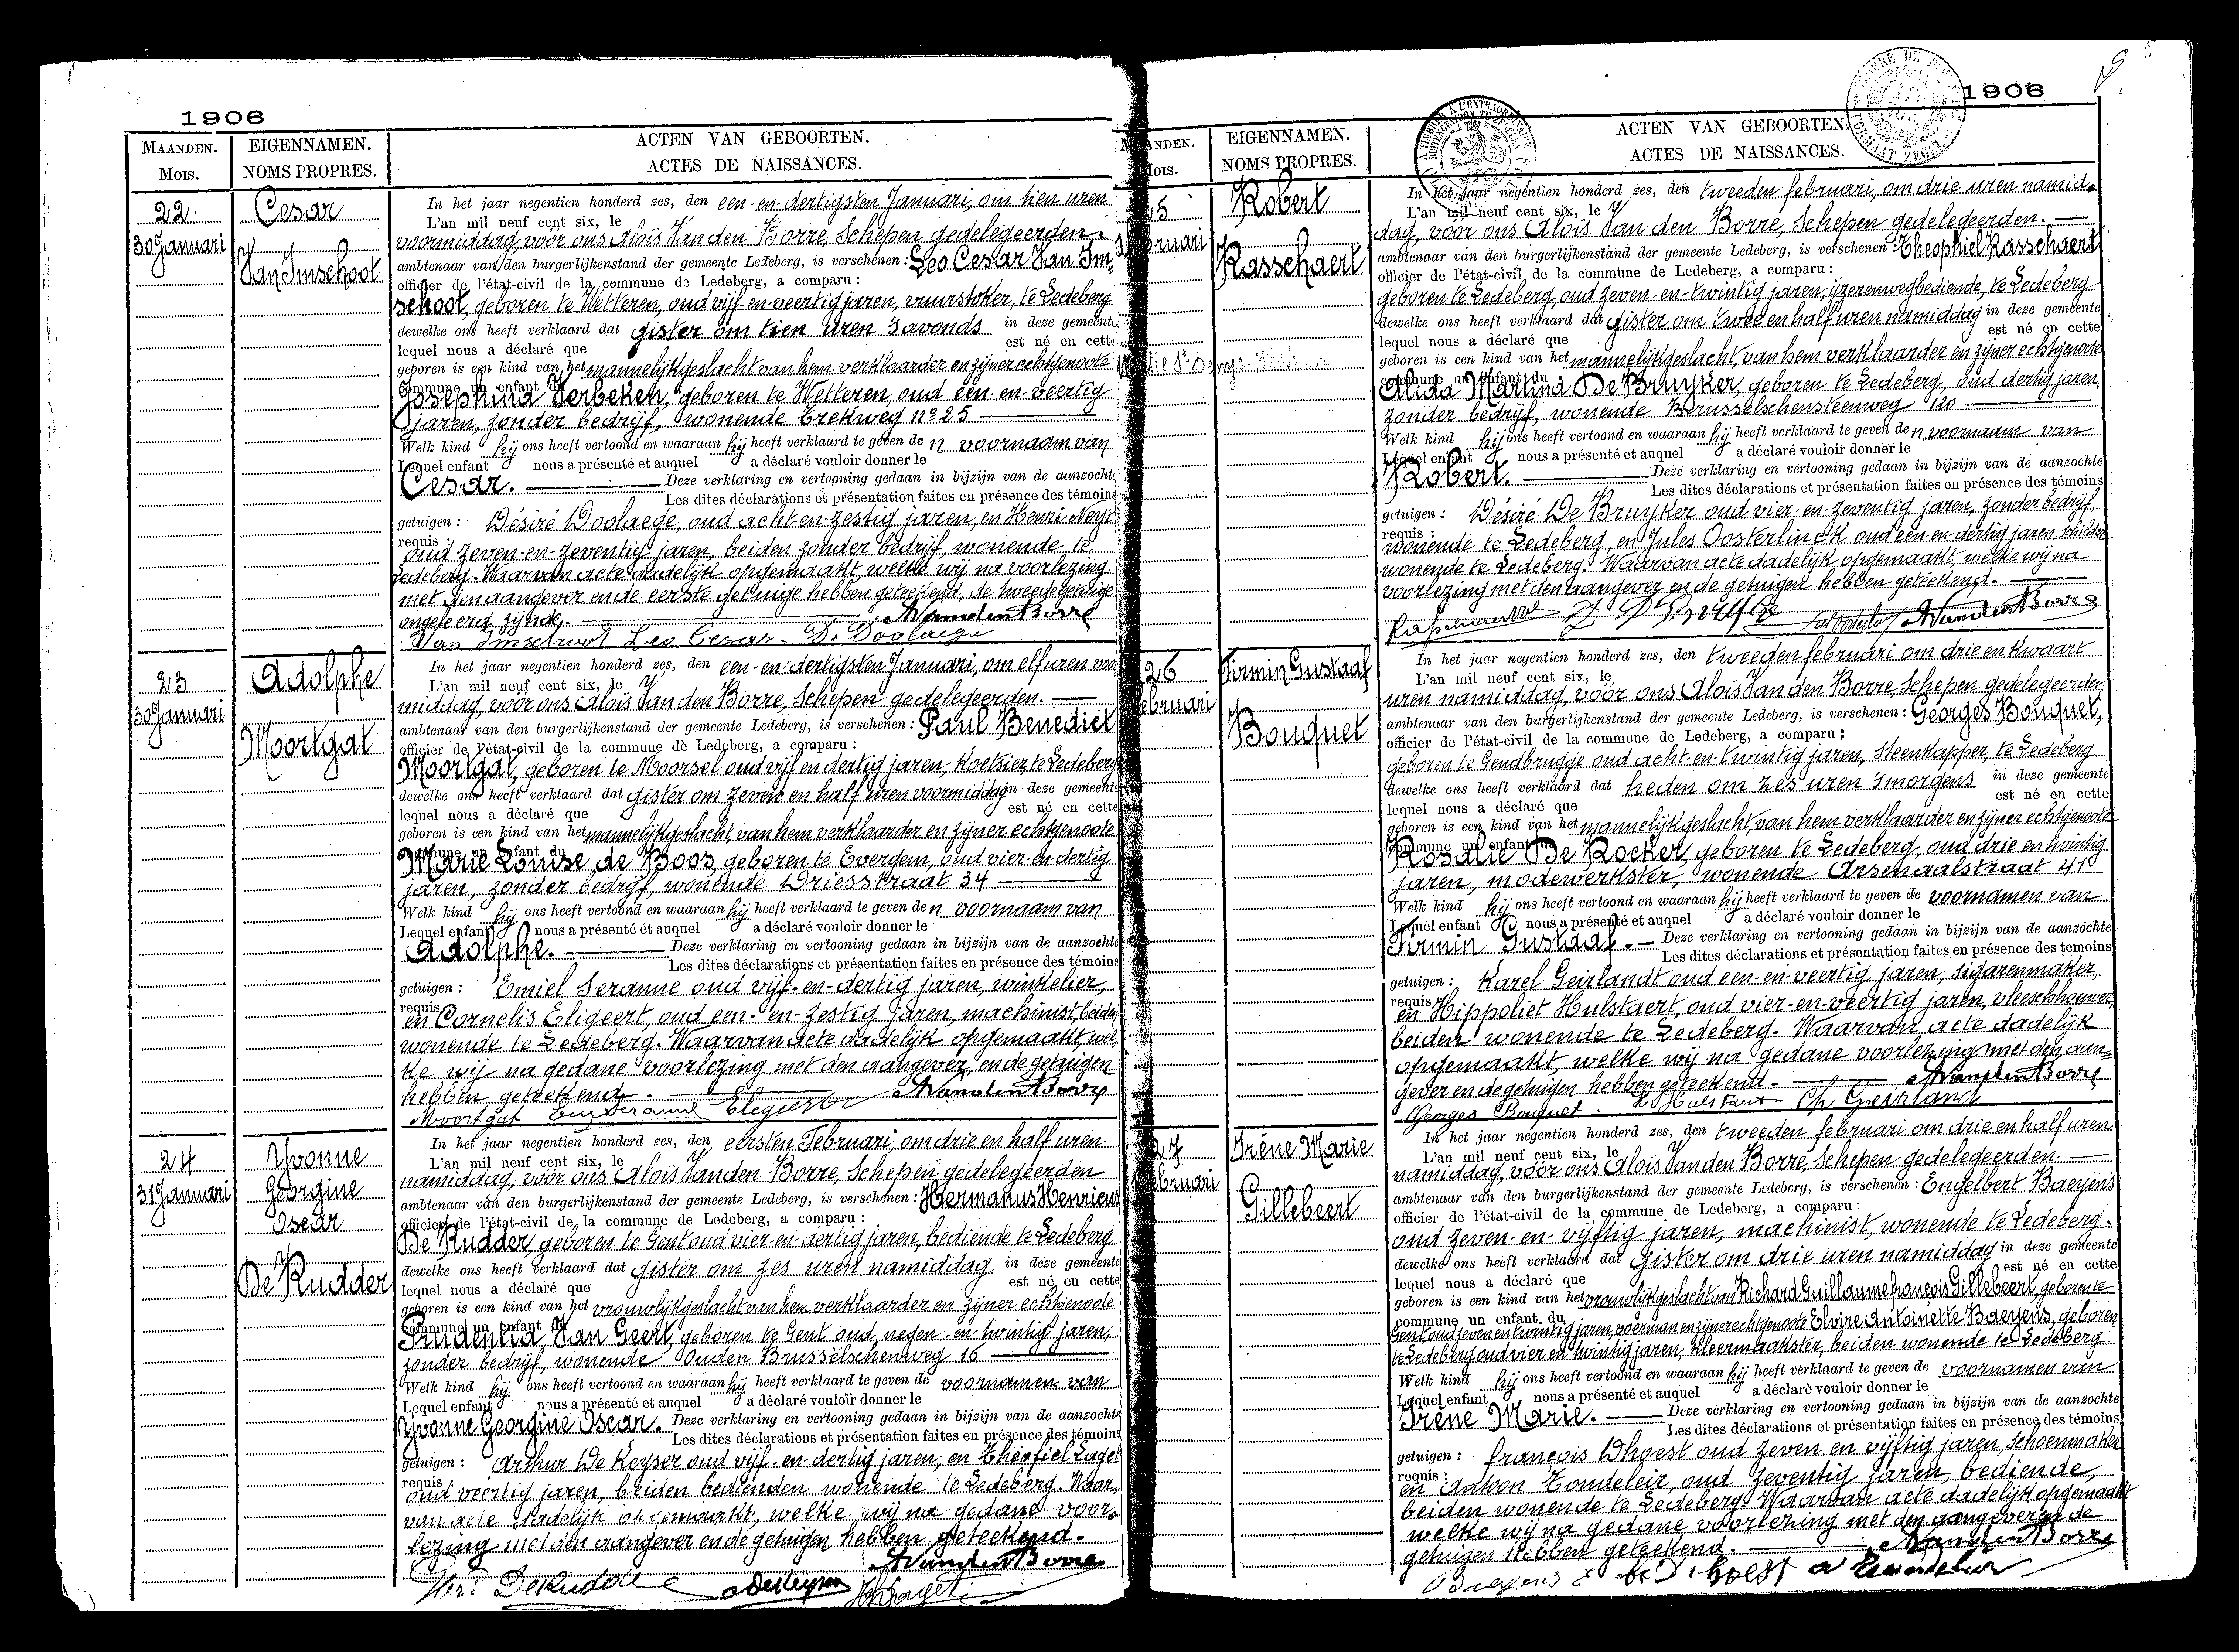 1906
MAANDEN.
Mois.
EIGENNAMEN.
NOMS PROPRES.
ACTEN VAN GEBOORTEN.
ACTES DE NAISSANCES.
22
30 Januari
Cesar
Van Imschoot
In het jaar negentien honderd zes, den een-en-dertigsten Januari, om tien uren
L'an mil neuf cent six, le
voormiddag, voor ons Aloïs Van den Borre, Schepen gedelegeerden.
ambtenaar van den burgerlijkenstand der gemeente Ledeberg, is verschenen: Leo Cesar Van Im-
officier de l'état-civil de la commune de Ledeberg, a comparu:
schoot, geboren te Wetteren, oud vijf-en-veertig jaren, vuurstoker, te Ledeberg
dewelke ons heeft verklaard dat gister om tien uren 's avonds in deze gemeente
lequel nous a déclaré que est né en cette
geboren is een kind van het mannelijk geslacht van hem verklaarder en zijner echtgenoote
commune un enfant du
Josephina Verbeken, geboren te Wetteren, oud een-en-veertig
jaren, zonder bedrijf, wonende Trekweg nº 25
Welk kind hij ons heeft vertoond en waaraan hij heeft verklaard te geven den voornaam van
Lequel enfant nous a présenté et auquel a déclaré vouloir donner le
Cesar. Deze verklaring en vertooning gedaan in bijzijn van de aanzochte
Les dites déclarations et présentation faites en présence des témoins
getuigen: Désiré Doolaege, oud acht-en-zestig jaren, en Henri Neyt
requis:
oud zeven-en-zeventig jaren, beiden zonder bedrijf, wonende te
Ledeberg. Waarvan acte dadelijk opgemaakt, welke wij na voorlezing
met den aangever en de eerste getuige hebben geteekend, de tweede getuige
ongeleerd zijnde. A Vanden Borre
Van Imschoot Leo Cesar D. Doolaege
23
30 Januari
Adolphe
Moortgat
In het jaar negentien honderd zes, den een-en-dertigsten Januari, om elf uren voor
L'an mil neuf cent six, le
middag, voor ons Aloïs Van den Borre, Schepen gedelegeerden.
ambtenaar van den burgerlijkenstand der gemeente Ledeberg, is verschenen: Paul Benedict
officier de l'état-civil de la commune de Ledeberg, a comparu:
Moortgat, geboren te Moorsel oud vijf en dertig jaren, Koetsier, te Ledeberg
dewelke ons heeft verklaard dat gister om zeven en half uren voormiddag in deze gemeente
lequel nous a déclaré que est né en cette
geboren is een kind van het mannelijk geslacht van hem verklaarder en zijner echtgenoote
commune un enfant du
Marie Louise de Boos, geboren te Evergem, oud vier-en-dertig
jaren, zonder bedrijf, wonende Driesstraat 34
Welk kind hij ons heeft vertoond en waaraan hij heeft verklaard te geven den voornaam van
Lequel enfant nous a présenté et auquel a déclaré vouloir donner le
Adolphe. Deze verklaring en vertooning gedaan in bijzijn van de aanzochte
Les dites déclarations et présentation faites en présence des témoins
getuigen: Emiel Seranne oud vijf-en-dertig jaren, winkelier,
requis:
en Cornelis Eligeert, oud een-en-zestig jaren, machinist, beiden
wonende te Ledeberg. Waarvan acte dadelijk opgemaakt, wel-
ke wij na gedane voorlezing met den aangever, en de getuigen
hebben geteekend. A Vanden Borre
Moortgat Em Seranne
24
31 Januari
Yvonne
Georgine
Oscar
De Rudder
In het jaar negentien honderd zes, den eersten Februari, om drie en half uren
L'an mil neuf cent six, le
namiddag, voor ons Aloïs Van den Borre, Schepen gedelegeerden
ambtenaar van den burgerlijkenstand der gemeente Ledeberg, is verschenen: Hermanus Henricus
officier de l'état-civil de la commune de Ledeberg, a comparu:
De Rudder, geboren te Gent oud vier-en-dertig jaren, bediende te Ledeberg
dewelke ons heeft verklaard dat gister om zes uren namiddag in deze gemeente
lequel nous a déclaré que est né en cette
geboren is een kind van het vrouwelijk geslacht van hem verklaarder en zijner echtgenoote
commune un enfant du
Prudentia Van Geert, geboren te Gent oud negen-en-twintig jaren,
zonder bedrijf, wonende Ouden Brusselschenweg 16
Welk kind hij ons heeft vertoond en waaraan hij heeft verklaard te geven de voornamen van
Lequel enfant nous a présenté et auquel a déclaré vouloir donner le
Yvonne Georgine Oscar. Deze verklaring en vertooning gedaan in bijzijn van de aanzochte
Les dites déclarations et présentation faites en présence des témoins
getuigen: Arthur De Keyser oud vijf-en-dertig jaren, en Theofiel Laget
requis:
oud veertig jaren, beiden bedienden wonende te Ledeberg. Waar-
van acte dadelijk opgemaakt, welke wij na gedane voor-
lezing met den aangever en de getuigen hebben geteekend.
A Vanden Borre
DeRudder A DeKeyser Th Laget
1906
MAANDEN.
Mois.
EIGENNAMEN.
NOMS PROPRES.
ACTEN VAN GEBOORTEN.
ACTES DE NAISSANCES.
25
1 Februari
Robert
Rasschaert
In het jaar negentien honderd zes, den tweeden februari, om drie uren namid-
L'an mil neuf cent six, le
dag, voor ons Aloïs Van den Borre, Schepen gedelegeerden.
ambtenaar van den burgerlijkenstand der gemeente Ledeberg, is verschenen: Theophiel Rasschaert
officier de l'état-civil de la commune de Ledeberg, a comparu:
geboren te Ledeberg, oud zeven-en-twintig jaren, ijzerenwegbediende, te Ledeberg
dewelke ons heeft verklaard dat gister om twee en half uren namiddag in deze gemeente
lequel nous a déclaré que est né en cette
geboren is een kind van het mannelijk geslacht, van hem verklaarder en zijner echtgenoote
commune un enfant du
Alida Martina De Bruyker, geboren te Ledeberg, oud dertig jaren,
zonder bedrijf, wonende Brusselschensteenweg 120
Welk kind hij ons heeft vertoond en waaraan hij heeft verklaard te geven den voornaam van
Lequel enfant nous a présenté et auquel a déclaré vouloir donner le
Robert. Deze verklaring en vertooning gedaan in bijzijn van de aanzochte
Les dites déclarations et présentation faites en présence des témoins
getuigen: Désiré De Bruyker oud vier-en-zeventig jaren, zonder bedrijf,
requis:
wonende te Ledeberg, en Jules Oosterlinck oud een-en-dertig jaren schilder
wonende te Ledeberg. Waarvan acte dadelijk opgemaakt, welke wij na
voorlezing met den aangever en de getuigen hebben geteekend.
A Vanden Borre
26
Februari
Firmin Gustaaf
Bouquet
In het jaar negentien honderd zes, den tweeden februari om drie en kwaart
L'an mil neuf cent six, le
uren namiddag, voor ons Aloïs Van den Borre, Schepen gedelegeerden,
ambtenaar van den burgerlijkenstand der gemeente Ledeberg, is verschenen: Georges Bouquet,
officier de l'état-civil de la commune de Ledeberg, a comparu:
geboren te Gendbrugge oud acht-en-twintig jaren, steenkapper, te Ledeberg
dewelke ons heeft verklaard dat heden om zes uren 's morgens in deze gemeente
lequel nous a déclaré que est né en cette
geboren is een kind van het mannelijk geslacht, van hem verklaarder en zijner echtgenoote
commune un enfant du
Rosalie De Kocker, geboren te Ledeberg, oud drie en twintig
jaren, modewerkster, wonende Arsenaalstraat 41
Welk kind hij ons heeft vertoond en waaraan hij heeft verklaard te geven de voornamen van
Lequel enfant nous a présenté et auquel a déclaré vouloir donner le
Firmin Gustaaf. Deze verklaring en vertooning gedaan in bijzijn van de aanzochte
Les dites déclarations et présentation faites en présence des temoins
getuigen: Karel Geirlandt oud een-en-veertig jaren, sigarenmaker,
requis:
en Hippoliet Hulstaert, oud vier-en-veertig jaren, vleeschhouwer,
beiden wonende te Ledeberg. Waarvan acte dadelijk
opgemaakt, welke wij na gedane voorlezing met den aan-
gever en de getuigen hebben geteekend. A Vanden Borre
Georges Bouquet. H Hulstaert Ch Geirland
27
Februari
Irêne Marie
Gillebeert
In het jaar negentien honderd zes, den tweeden februari om drie en half uren
L'an mil neuf cent six, le
namiddag, voor ons Aloïs Van den Borre, Schepen gedelegeerden.
ambtenaar van den burgerlijkenstand der gemeente Ledeberg, is verschenen: Engelbert Baeyens
officier de l'état-civil de la commune de Ledeberg, a comparu:
oud zeven-en-vijftig jaren, machinist, wonende te Ledeberg.
dewelke ons heeft verklaard dat gister om drie uren namiddag in deze gemeente
lequel nous a déclaré que est né en cette
geboren is een kind van het vrouwelijk geslacht van Richard Guillaume françois Gillebeert, geboren te
commune un enfant du
Gent oud zeven en twintig jaren, voerman en zijner echtgenoote Elvire Antoinette Baeyens, geboren
te Ledeberg oud vier en twintig jaren, kleermaakster, beiden wonende te Ledeberg.
Welk kind hij ons heeft vertoond en waaraan hij heeft verklaard te geven de voornamen van
Lequel enfant nous a présenté et auquel a déclaré vouloir donner le
Irêne Marie. Deze verklaring en vertooning gedaan in bijzijn van de aanzochte
Les dites déclarations et présentation faites en présence des témoins
getuigen: françois Dhoest oud zeven en vijftig jaren, schoenmaker
requis:
en Antoon Tondeleir, oud zeventig jaren, bediende,
beiden wonende te Ledeberg. Waarvan acte dadelijk opgemaakt
welke wij na gedane voorlezing met den aangever en de
getuigen hebben geteekend. A Vanden Borre
Baeyens E